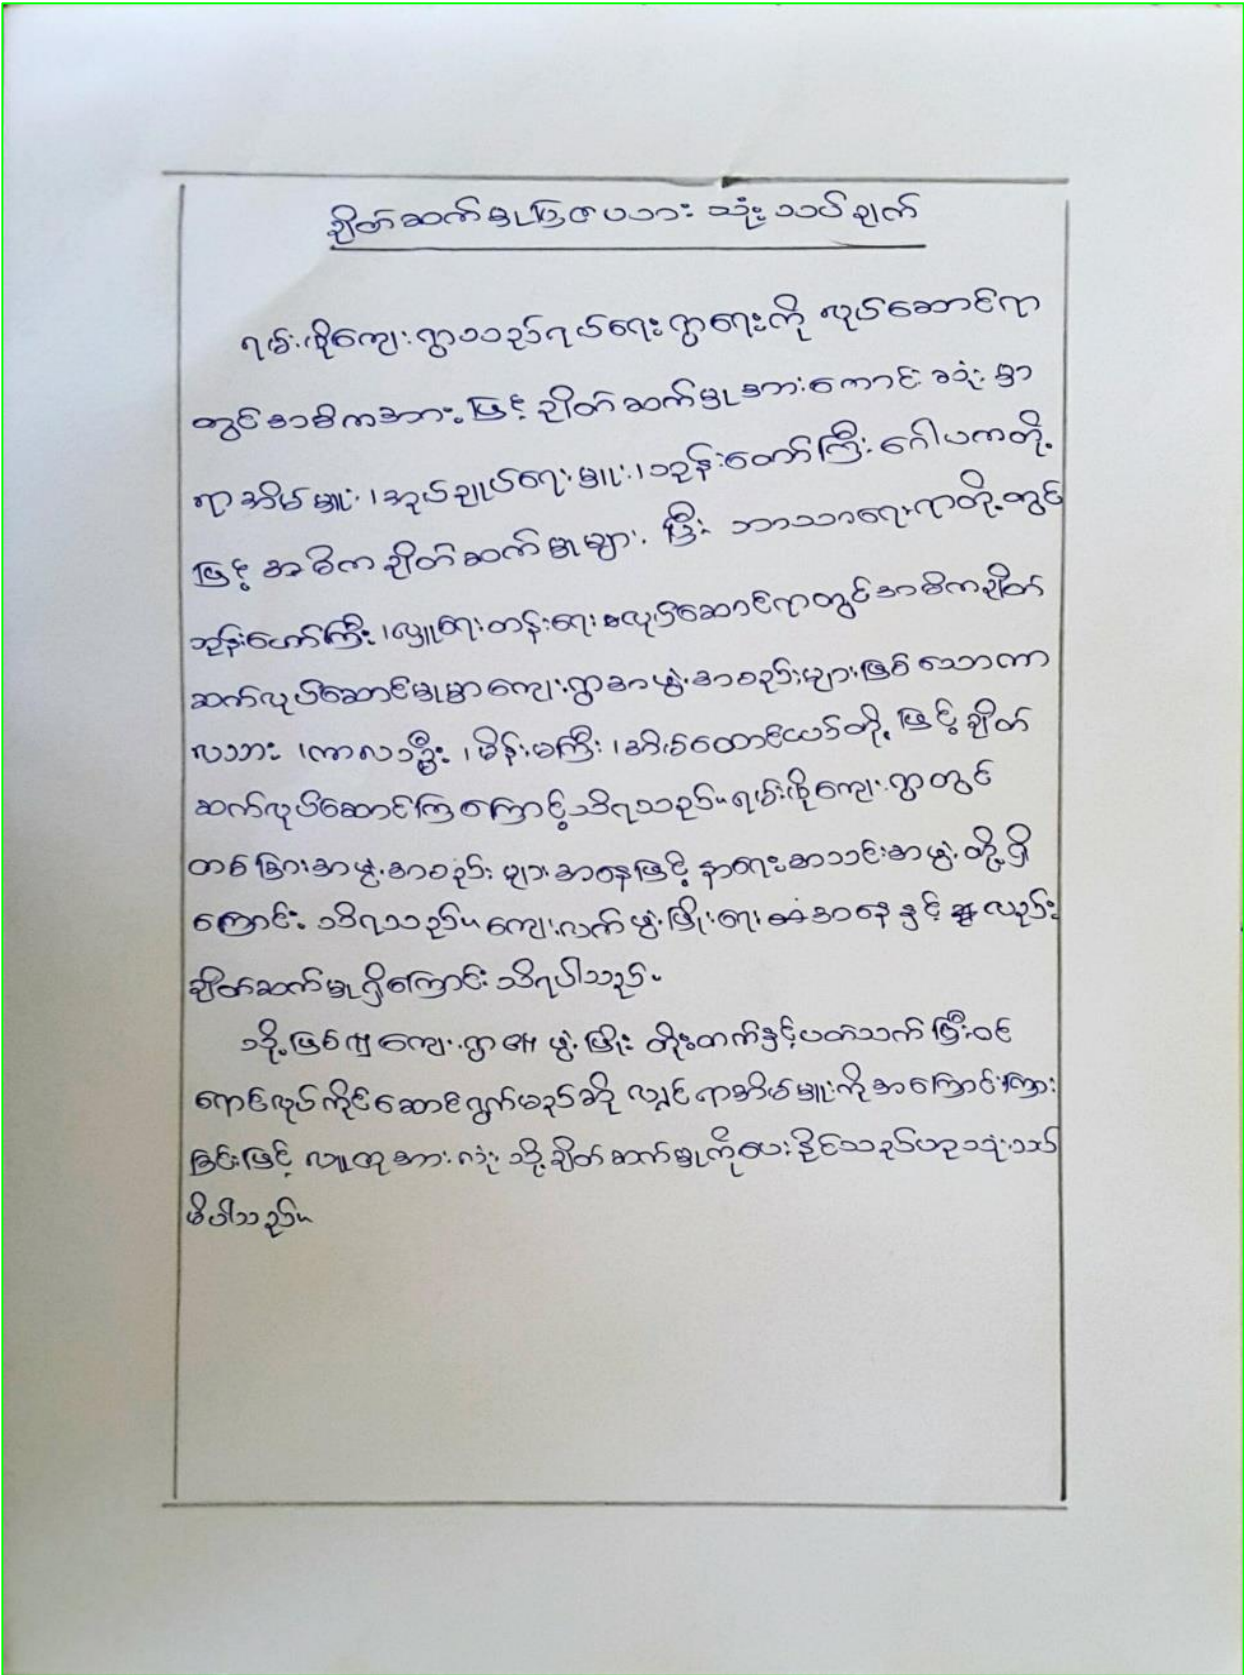 ချိတ်ဆက်မှုပြဇယားသုံးသပ်ချက်
ရမ်းဗိုကျေးရွာသည်ရပ်ရေးရွာရေးကို လုပ်ဆောင်ရာ
တွင်အဓိကအားဖြင့် ချိတ်ဆက်မှုအားကောင်းဆုံးမှာ
ရာအိမ်မှူး၊အုပ်ချုပ်ရေးမှူး၊ဘုန်းတော်ကြီး ဂေါပကတို့
ဖြင့် အဓိကချိတ်ဆက်မှုများပြီး ဘာသာရေးရာတို့တွင်
ဘုန်းတော်ကြီး၊လှူရေးတန်းရေးလုပ်ဆောင်ရာတွင်အဓိကချိတ်
ဆက်လုပ်ဆောင်မှုမှာကျေးရွာအဖွဲ့အစည်းများဖြစ်သော
လသား၊ကာလသဦး၊မိန်းမကြီး၊အိမ်ထောင်ယပ်တို့ဖြင့်ချိတ်
ဆက်လုပ်ဆောင်ကြကြောင့်သိရသည်။ရမ်းဗိုကျေးရွာတွင်
တစ်ခြားအဖွဲ့အစည်းများအနေဖြင့် နာရေးအသင်းအဖွဲ့တို့ရှိ
ကြောင်းသိရသည်။ကျေးလက်ဖွံ့ဖြိုးရေး အနေနှင့် လည်း
ချိတ်ဆက်မှုရှိကြောင်းသိရပါသည်။
သို့ဖြစ်၍ကျေးရွာ၏ဖွံ့ဖြိုးတိုးတက်နှင့်ပတ်သက်ပြီးဝင်
ရောင်လုပ်ကိုင်ဆောင်ရွက်မည်ဆိုလျှင်ရာအိမ်မှူးကိုအကြောင်းကြား
ခြင်းဖြင့် လူထုအားလုံးသို့ချိတ်ဆက်မှုကိုပေးနိုင်သည်ဟုသုံးသပ်
မိပါသည်။